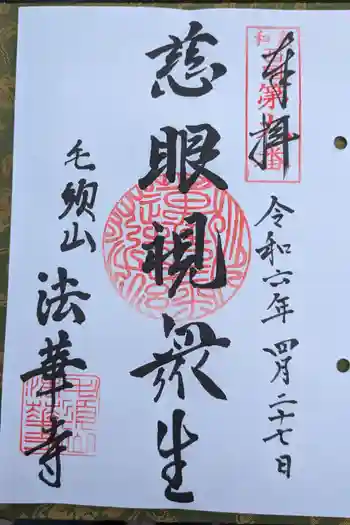 奉拝
令和六年四月二十七日
慈眼視衆生
毛須山
法華寺